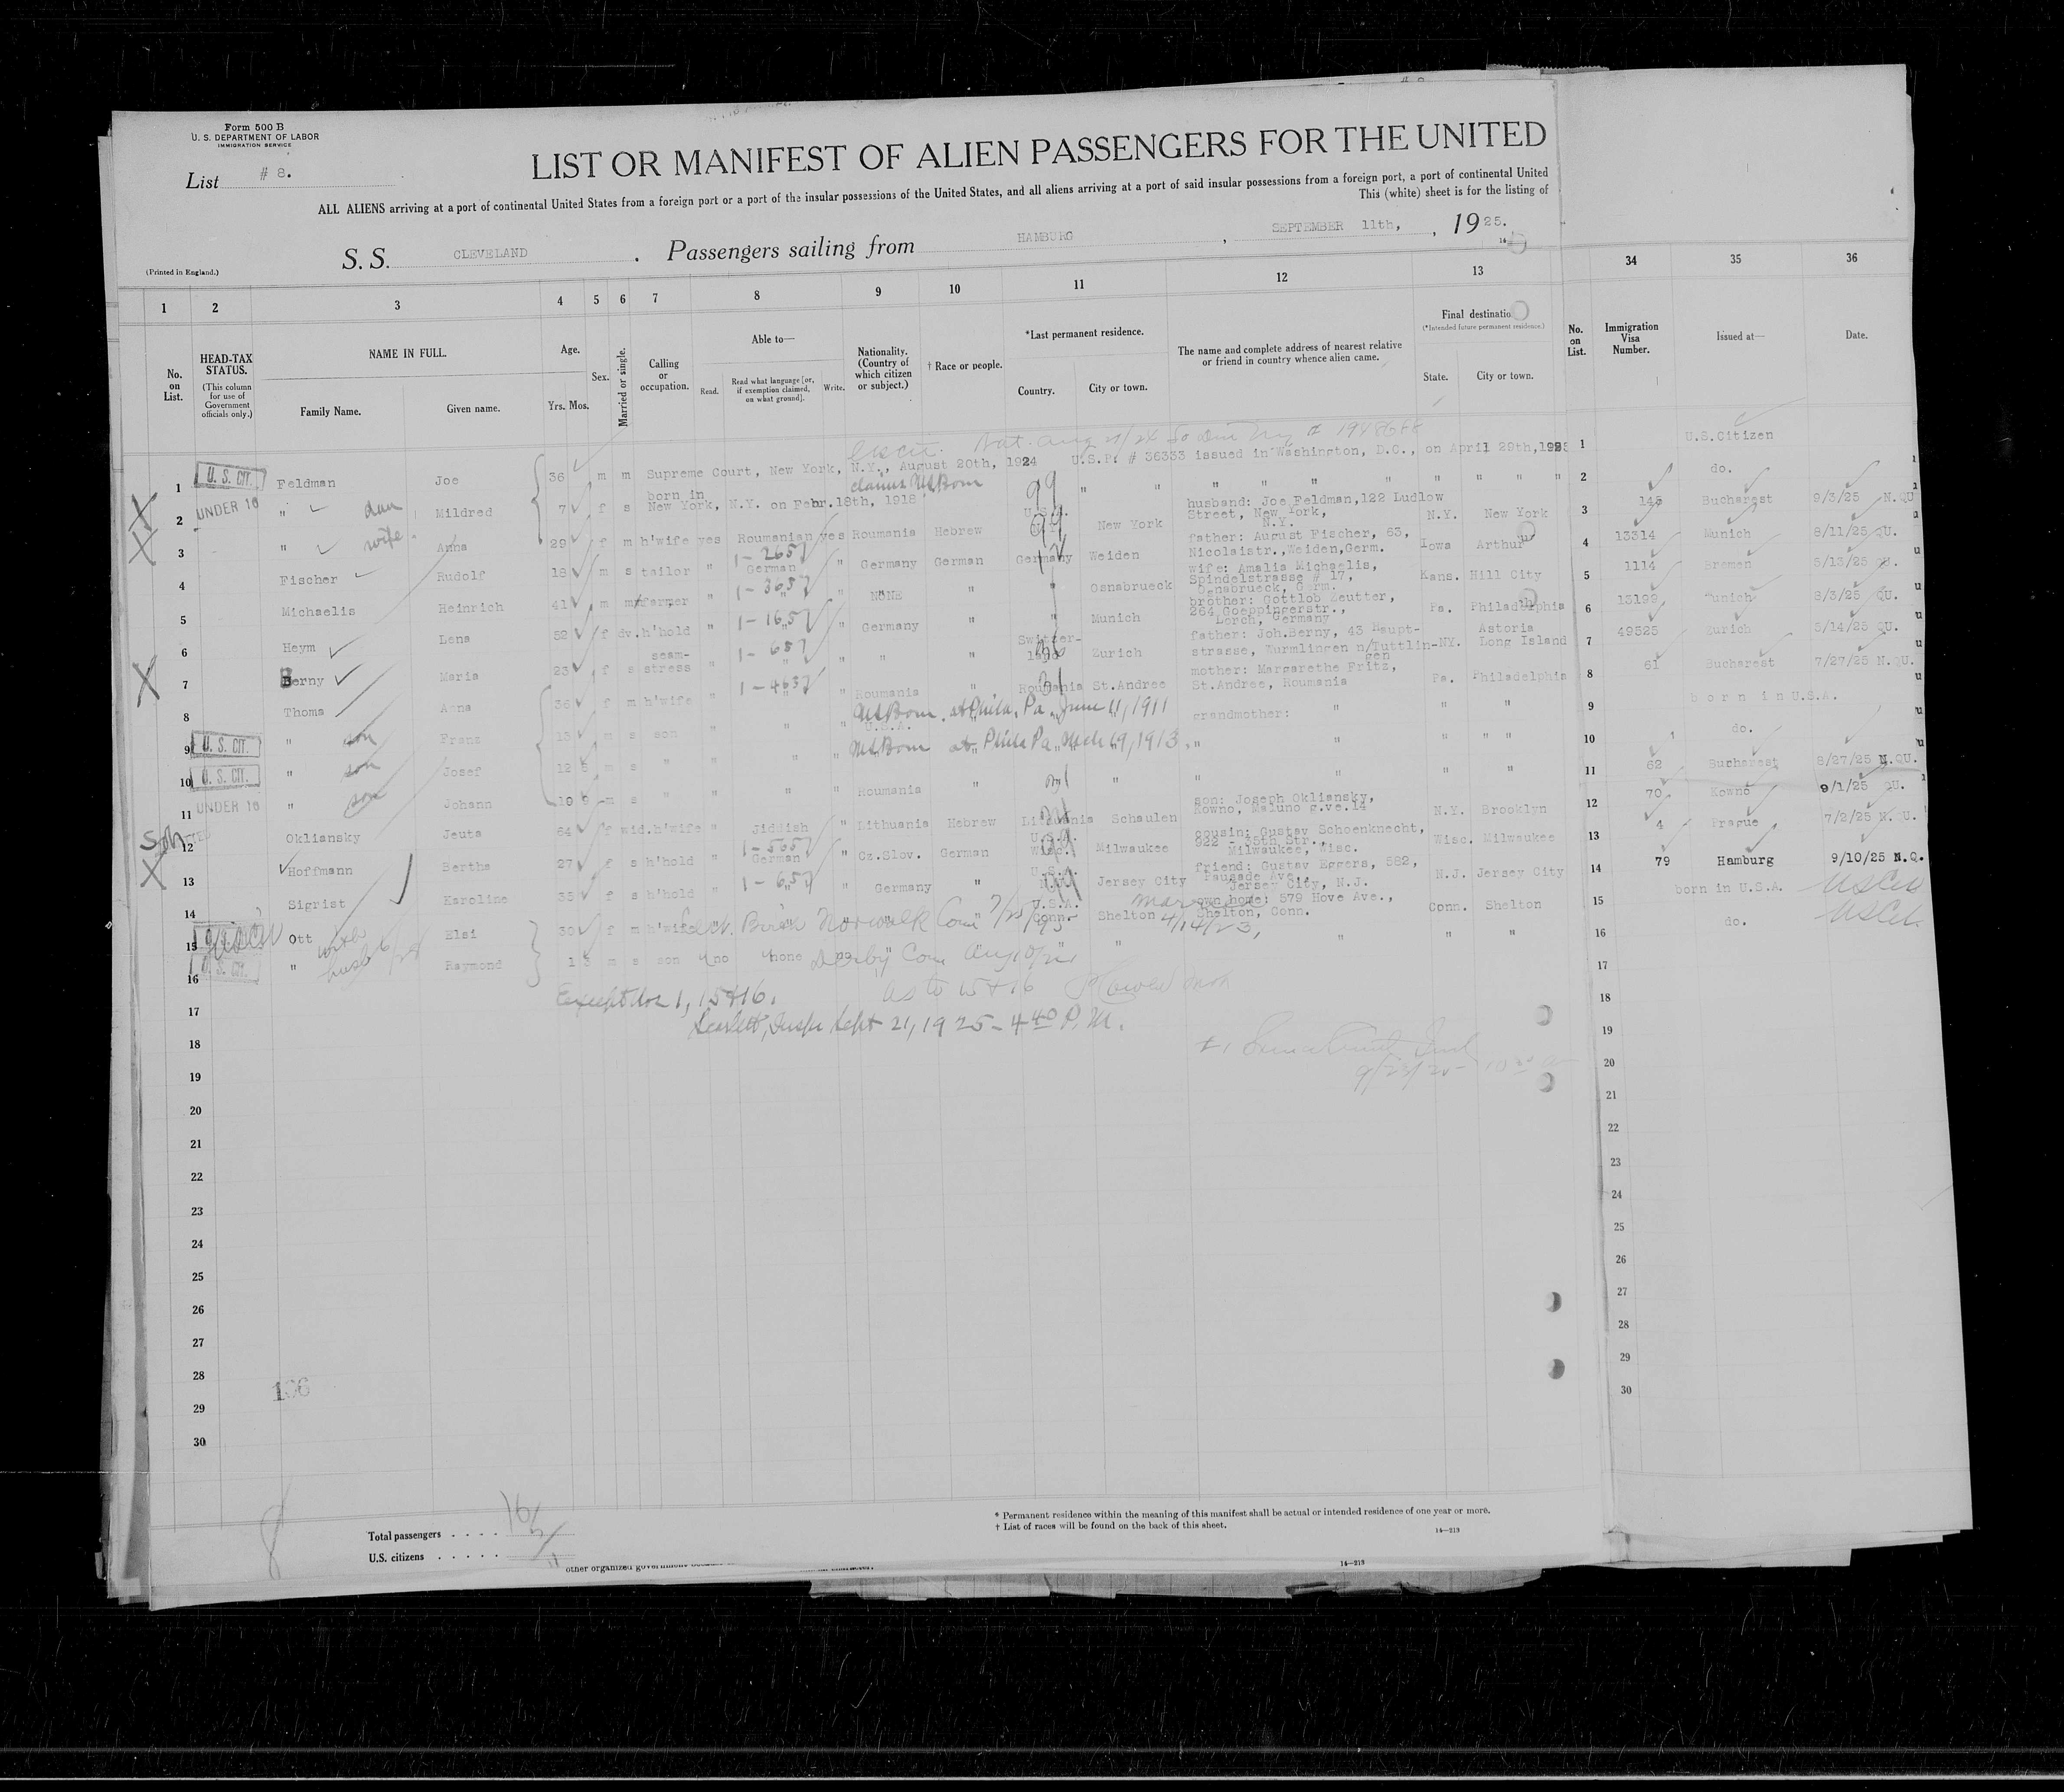 Form 500 B
U. S. DEPARTMENT OF LABOR
IMMIGRATION SERVICE
List # 8.
LIST OR MANIFEST OF ALIEN PASSENGERS FOR THE UNITED
ALL ALIENS arriving at a port of continental United States from a foreign port or a port of the insular possessions of the United States, and all aliens arriving at a port of said insular possessions from a foreign port, a port of continental United
This (white) sheet is for the listing of
S. S. CLEVELAND . Passengers sailing from HAMBURG , SEPTEMBER 11th, , 1925.
(Printed in England.)
1 2 3 4 5 6 7 8 9 10 11 12 13 34 35 36
No. on List.
HEAD-TAX STATUS.
(This column for use of Government officials only.)
NAME IN FULL.
Family Name. Given name.
Age.
Yrs. Mos.
Sex.
Married or single.
Calling or occupation.
Able to—
Read. Read what language [or, if exemption claimed, on what ground]. Write.
Nationality. (Country of which citizen or subject.)
† Race or people.
*Last permanent residence.
Country. City or town.
The name and complete address of nearest relative or friend in country whence alien came.
Final destination
(*Intended future permanent residence.)
State. City or town.
No. on List.
Immigration Visa Number.
Issued at—
Date.
1 U. S. CIT. Feldman Joe 36 m m Supreme Court, New York, N.Y., August 20th, 1924 U.S.P. # 36333 issued in Washington, D.C., on April 29th, 1 U.S.Citizen
2 UNDER 16 " dau Mildred 7 f s born in New York, N.Y. on Febr.18th, 1918 claims US Born " " " " " " " " " " 2 do.
3 " wife Anna 29 f m h'wife yes Roumanian yes Roumania Hebrew U.S.A. New York husband: Joe Feldman,122 Ludlow Street, New York, N.Y. N.Y. New York 3 145 Bucharest 9/3/25 N.QU
4 Fischer Rudolf 18 m s tailor " German " Germany German Germany Weiden father: August Fischer, 63, Nicolaistr.,Weiden,Germ. Iowa Arthur 4 13314 Munich 8/11/25 QU.
5 Michaelis Heinrich 41 m m farmer " " " NONE " " Osnabrueck wife: Amalia Michaelis, Spindelstrasse # 17, Osnabrueck, Germ. Kans. Hill City 5 1114 Bremen 5/13/25 QU.
6 Heym Lena 52 f dv. h'hold " " " Germany " " Munich brother: Gottlob Zeutter, 264 Goeppingerstr., Lorch, Germany Pa. Philadelphia 6 13199 Munich 8/3/25 QU.
7 Berny Maria 23 f s seam-stress " " " " " Switzer-land Zurich father: Joh.Berny, 43 Haupt-strasse, Wurmlingen n/Tuttlin-gen NY. Astoria Long Island 7 49525 Zurich 5/14/25 QU.
8 Thoma Anna 36 f m h'wife " " " Roumania " Roumania St.Andree mother: Margarethe Fritz, St.Andree, Roumania Pa. Philadelphia 8 61 Bucharest 7/27/25 N.QU.
9 U. S. CIT. " son Franz 13 m s son " " " U.S.A. US Born at Phila, Pa June 11, 1911 grandmother: " " " 9 born in U.S.A.
10 U. S. CIT. " son Josef 12 m s " " " " US Born at Phila Pa Mch 19, 1913 " " " " " 10 do.
11 UNDER 16 " son Johann 10 9 m s " " " " Roumania " " " " " " 11 62 Bucharest 8/27/25 N.QU.
12 Okliansky Jeuta 64 f wid. h'wife " Jiddish " Lithuania Hebrew Lithuania Schaulen son: Joseph Okliansky, Kowno, Maluno g.ve.14 N.Y. Brooklyn 12 70 Kowno 9/1/25 QU.
13 Hoffmann Bertha 27 f s h'hold " German " Cz.Slov. German U.S.A. Wisc. Milwaukee cousin: Gustav Schoenknecht, 922 - 35th Str., Milwaukee, Wisc. Wisc. Milwaukee 13 4 Prague 7/2/25 N.QU.
14 Sigrist Karoline 35 f s h'hold " " " Germany " U.S.A. N.J. Jersey City friend: Gustav Eggers, 582, Palisade Ave., Jersey City, N.J. N.J. Jersey City 14 79 Hamburg 9/10/25 N.Q.
15 Ott Elsi 30 f m h'wife Birth Norwalk Conn U.S.A. Conn. Shelton married 4/14/23, own home: 579 Hove Ave., Shelton, Conn. Conn. Shelton 15 born in U.S.A. US Cit
16 U. S. CIT. " Raymond 1 m s son no none no Derby Conn " " " " " 16 do. US Cit
17 Except Nos 1, 15 & 16. as to 15 & 16 17
18 Insp Sept 21, 1925 - 4 40 P. M. 18
19 19
20 20
21 21
22 22
23 23
24 24
25 25
26 26
27 27
28 28
29 29
30 30
Total passengers . . . .
U.S. citizens . . . . .
* Permanent residence within the meaning of this manifest shall be actual or intended residence of one year or more.
† List of races will be found on the back of this sheet.
14—213
14—213